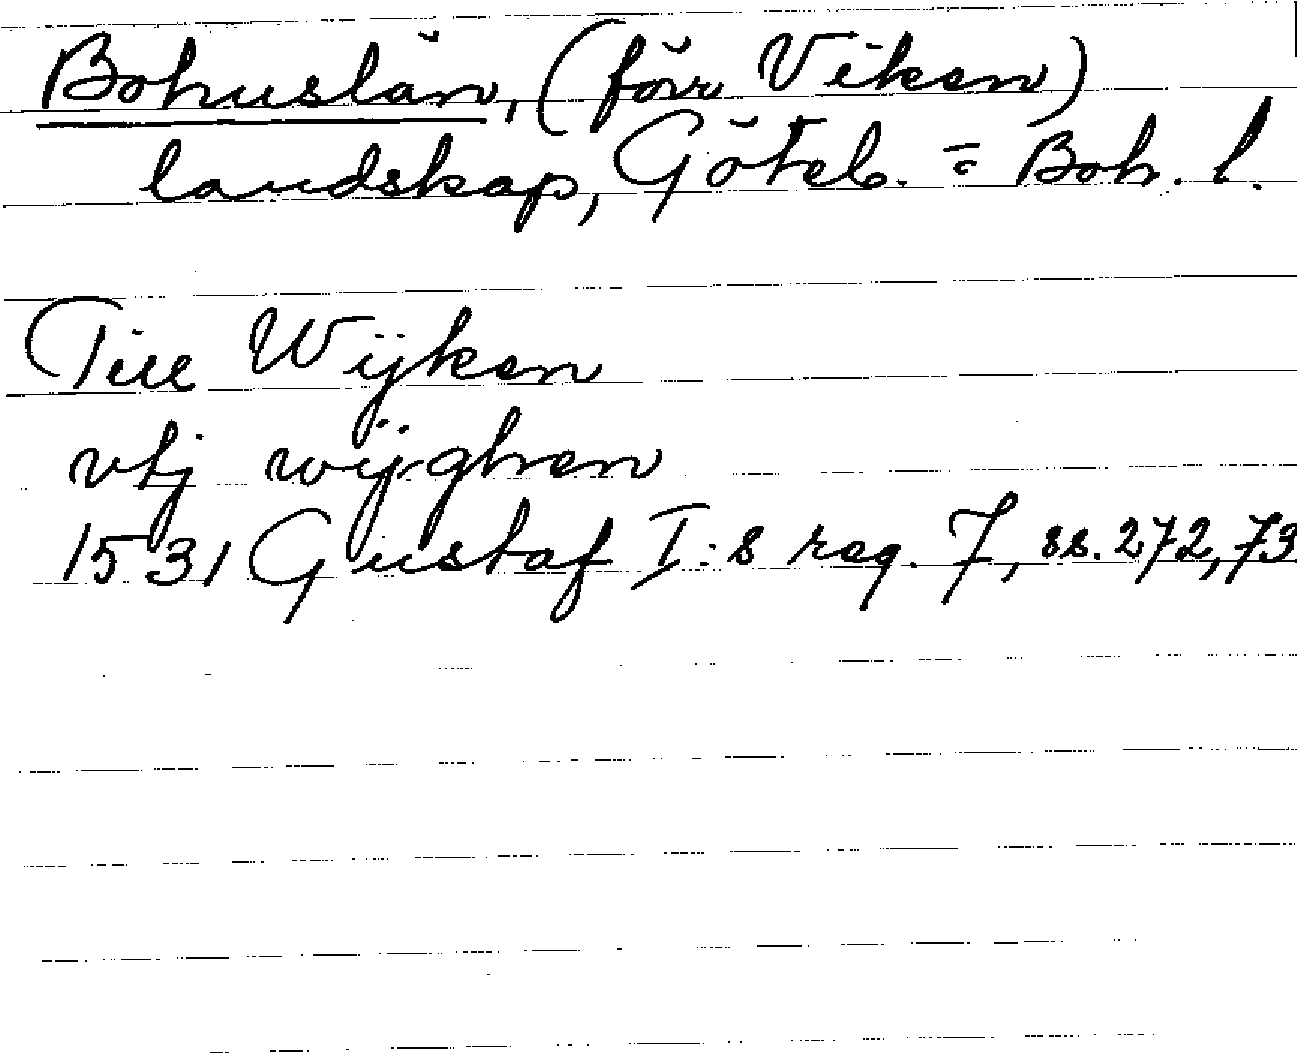 Bohuslän, (förr Viken)
landskap, Göteb. = Boh. l.
Till Wijken
vtj wijghen
1531 Gustaf I:s reg. 7, ss. 272, 73